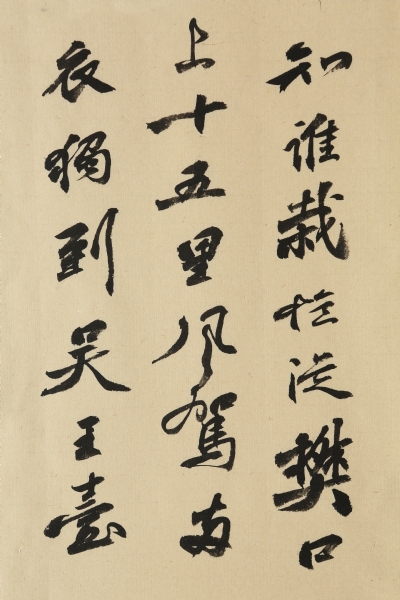 知誰栽憶從樊口
上十五里風駕兩
衣獨到吳王臺